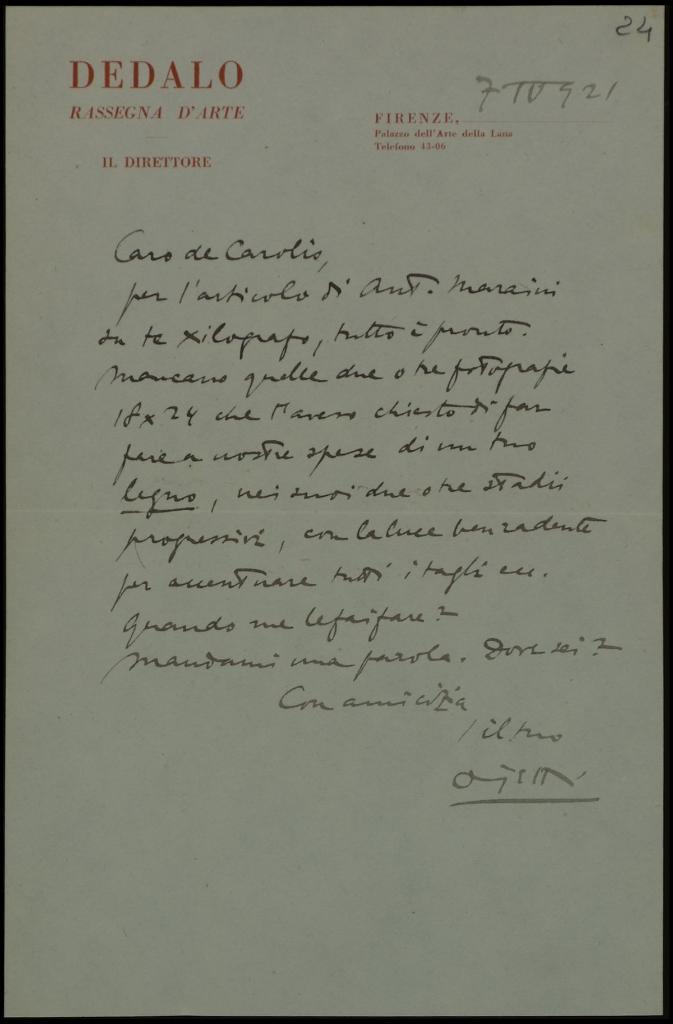 24
DEDALO
RASSEGNA D'ARTE
IL DIRETTORE
7 IV 921
FIRENZE,
Palazzo dell'Arte della Lana
Telefono 43-06
Caro de Carolis,
per l'articolo di Ant. Maraini
su te xilografo, tutto è pronto.
Mancano quelle due o tre fotografie
18x24 che t'avevo chiesto di far
fare a nostre spese di un tuo
legno, nei suoi due o tre stadii
progressivi, con la luce ben radente
per accentuare tutti i tagli ecc.
Quando me le fai fare?
Mandami una parola. Dove sei?
Con amicizia
il tuo
Ojetti